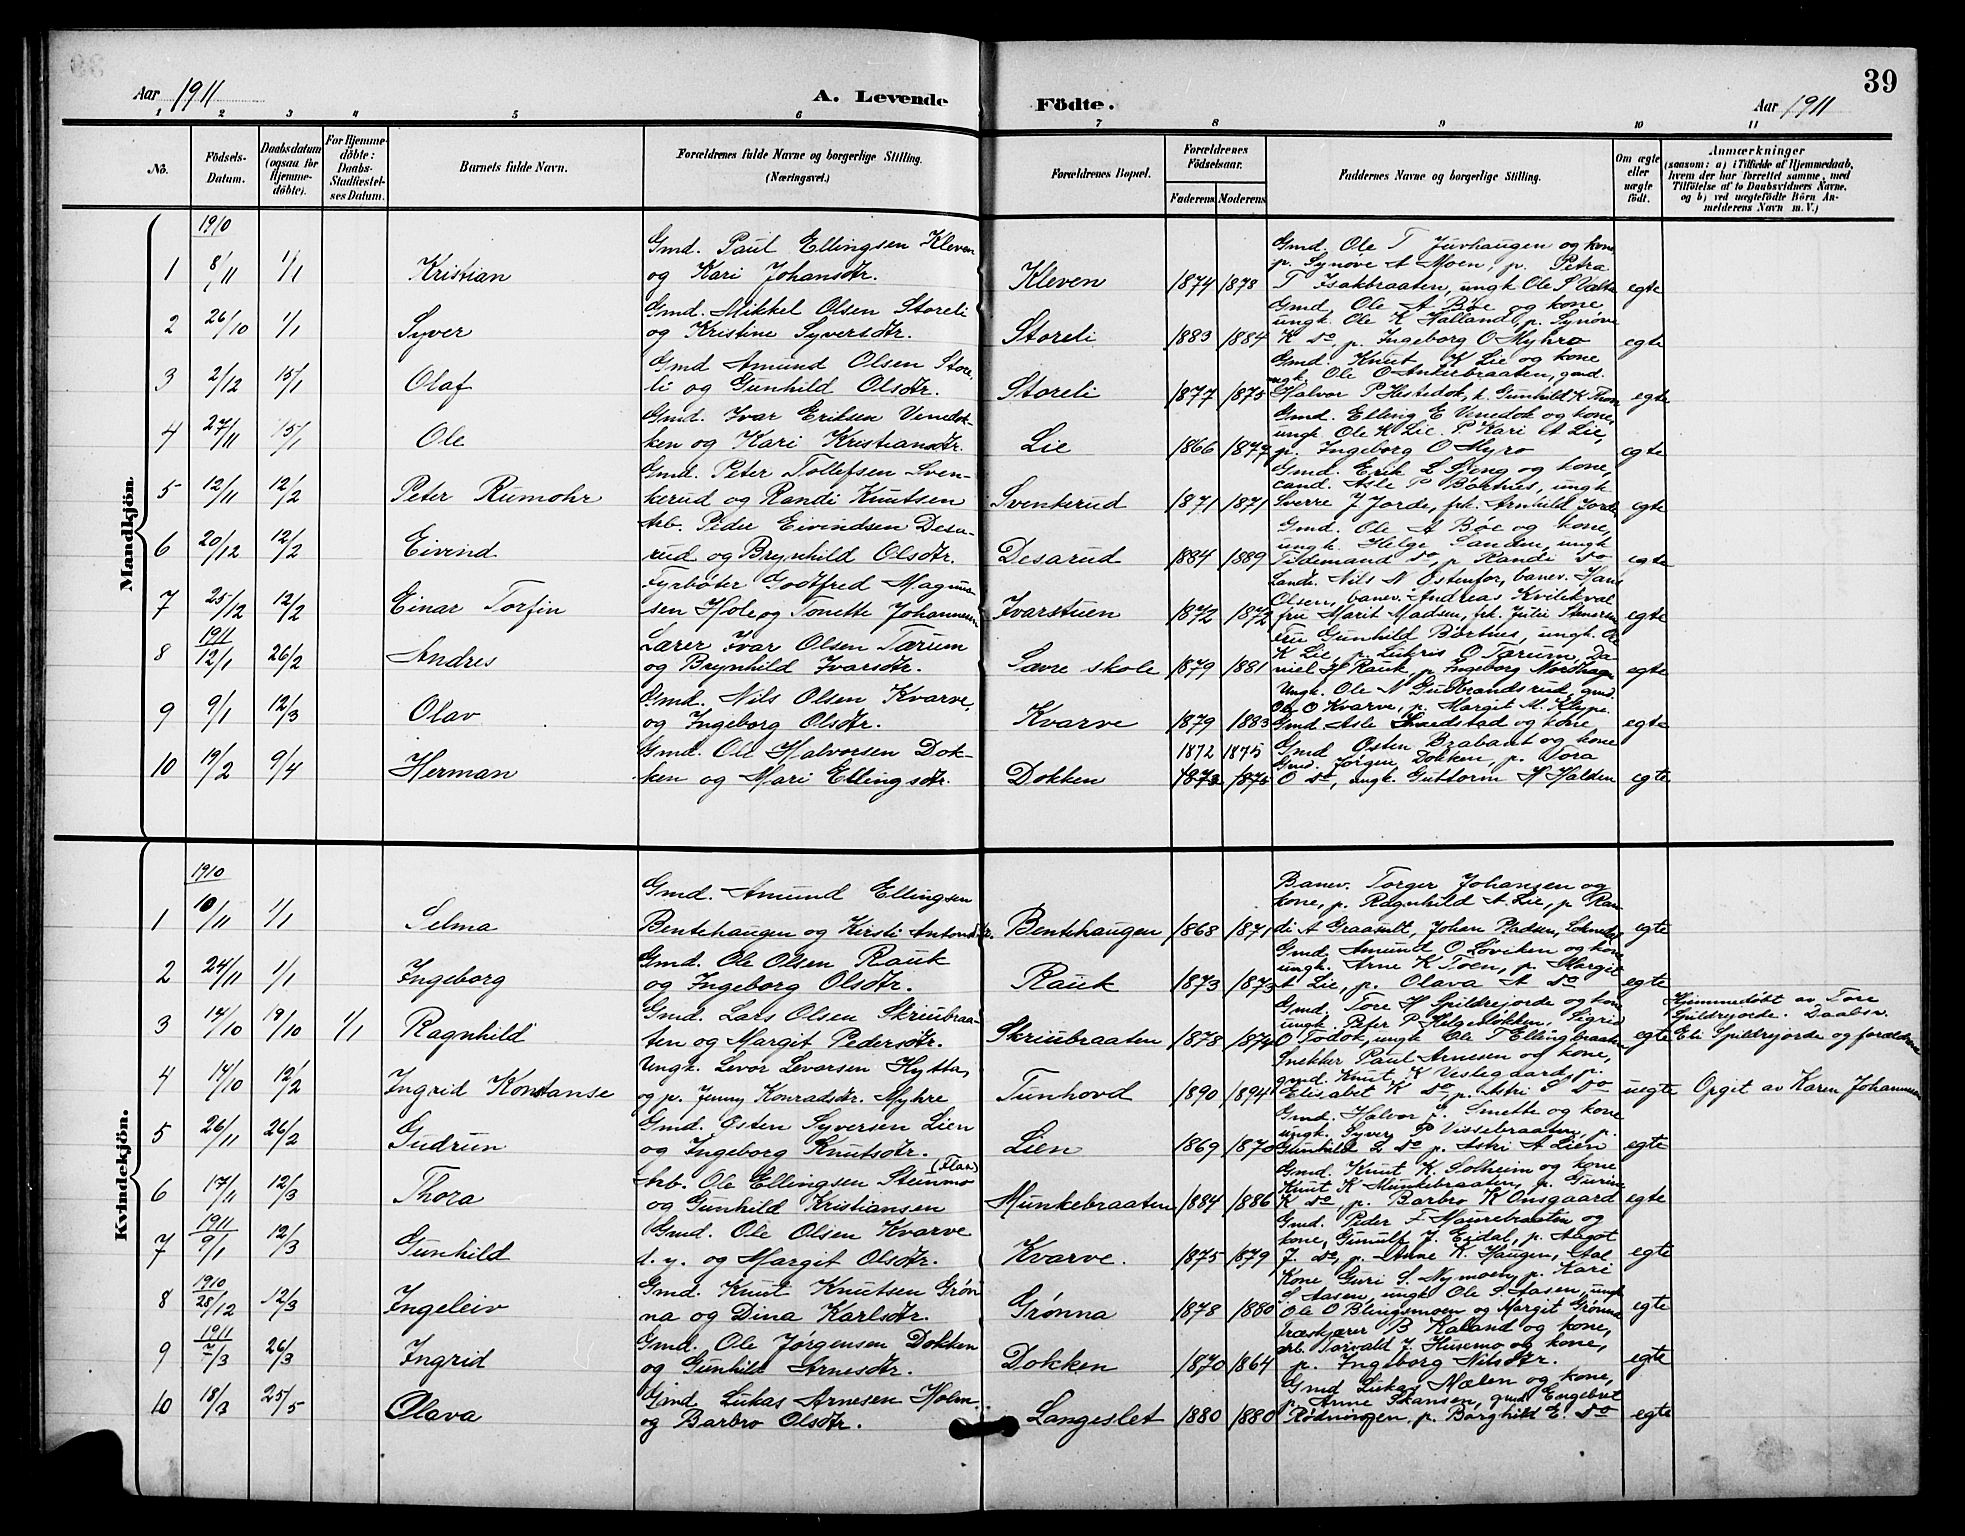 39
Aar 1911 A. Levende Födte. Aar 1911
1 2 3 4 5 6 7 8 9 10 11
No. Födsels-Datum. Daabsdatum (ogsaa for Hjemme-döbte). For Hjemme-döbte: Daabs-Stadfæstel-ses Datum. Barnets fulde Navn. Forældrenes fulde Navne og borgerlige Stilling. (Næringsvei.) Forældrenes Bopæl. Forældrenes Födselsaar. Faderens Moderens Faddernes Navne og borgerlige Stilling. Om ægte eller uægte födt. Anmærkninger (saasom: a) i Tilfælde af Hjemmedaab, hvem der har forrettet samme, med Tilföielse af to Daabsvidners Navne, og b) ved uægtefödte Börn An-melderens Navn m. V.)
Mandkjön.
1910
Gmd. Paul Ellingsen Kleven Gmd. Ole T Juvhaugen og kone,
p. Synøve A Moen, p. Petra
1 8/11 1/1 Kristian og Kari Johansdtr. Kleven 1874 1878 T Isakbraaten, ungk Ole P egte
Gmd. Mikkel Olsen Storeli Gmd. Ole A Bøe og kone,
ungk. Ole K Halland, p. Synøve
2 26/10 1/1 Syver og Kristine Syversdtr. Storeli 1883 1884 K do, p. Ingeborg O Myhro egte
Gmd Amund Olsen Store- Gmd. Knut K Lie og kone
ungk. Ole O Anterbraaten, gmd.
3 2/12 15/1 Olaf li og Gunhild Olsdtr. Storeli 1877 1875 Halvor P Hestedok, p. Gunhild K egte
Gmd. Ivar Eriksen Venedok- Gmd. Elling E Venedok og kone,
ungk Ole K Lie. P Kari A Lie,
4 27/11 15/1 Ole ken og Kari Kristiansdtr. Lie 1866 1877 p. Ingeborg O Myro egte
Gmd. Peter Tollefsen Sven- Gmd. Erik L og kone,
cand. Asle P Børtnes, ungk
5 12/11 12/2 Peter Rumohr kerud og Randi Knutsen Svenkerud 1871 1871 Sverre J Jorde, frk. Arnhild Jorde egte
Arb. Peder Eivindsen Desa- Gmd. Ole A Bøe og kone,
ungk Helge Sanden, ungk
6 20/12 12/2 Eivind rud og Brynhild Olsdtr. Desarud 1884 1889 Tidemand do, p Randi do egte
Fyrbøter Godtfred Magnus- Landh. Nils N Østenfor, banev. Hans
Olsen, banev. Andreas Kvilekval
7 25/12 12/2 Einar Torfin sen Hole og Tonette Johannesen Ivarstuen 1872 1872 fru Marit Madsen, frk. Julie Stenersen egte
1911
Lærer Ivar Olsen Tærum Fru Gunhild Børtnes, ungk. Ole
K Lie, p. Lukris O Tærum, Da-
8 12/1 26/2 Andres og Brynhild Ivarsdtr. Savre skole 1879 1881 niel H Rauk, p. Ingeborg Nordhagen egte
Gmd. Nils Olsen Kvarve, Ungk. Ole N Gulbrandsrud, gmd.
Ole O Kvarve, p. Margit M. Klype.
9 9/1 12/3 Olav og Ingeborg Olsdtr. Kvarve 1879 1883 Gmd. Asle Snedstad og kone egte
Gmd. Ole Halvorsen Dok- 1872 1875 Gmd Østen Brabant og kone
Gmd. Jørgen Dokken, p. Tora
10 19/2 9/4 Herman ken og Mari Ellingsdtr. Dokken 1873 1875 O do, ungk. Guttorm H Halden egte
Kvindekjön.
1910
Gmd. Amund Ellingsen Banev. Torger Johansen og
kone, p. Ragnhild A Lie, p Ran-
1 10/11 1/1 Selma Bentehaugen og Kirsti Antonsdtr. Bentehaugen 1868 1871 di A Graanlt, Johan Madsen, egte
Gmd. Ole Olsen Rauk Gmd Amund O Løviken og kone
ungk. Arne K Toen, p. Margit
2 24/11 1/1 Ingeborg og Ingeborg Olsdtr. Rauk 1873 1873 A Lie, p. Olava A do egte
Gmd. Lars Olsen Skriubraa- Gmd. Tore H Spildrejorde og kone Hjemmedøbt av Tore
ungk. Peter P Helgesløkken, Sigrid Spildrejorde. Daabsv.
3 14/10 19/10 1/1 Ragnhild ten og Margit Pedersdtr. Skriubraaten 1878 1874 O Todok, ungk Ole T Ellingbraaten egte Eli Spildrejorde og forældrene
Ungk. Levor Levorsen Hytta, Snekker Paul Arnesen og kone,
gmd. Knut K Veslegaard, p.
4 14/10 12/2 Ingrid Konstanse og p. Jenny Konradsdtr. Myhre Tunhovd 1890 1894 Elisabet K do, p. Astri S do uegte Opgit av Karen Johannesen
Gmd. Østen Syversen Lien Gmd. Halvor P. Smette og kone
ungk. Syver P Vissebraaten, p.
5 26/11 26/2 Gudrun og Ingeborg Knutsdtr. Lien 1869 1870 Gunhild L do p. Astri A Lien egte
(Flaa)
Arb. Ole Ellingsen Steinmo Gmd. Knut K. Solheim og kone
Knut K Munkebraaten, p. Gurine
6 17/11 12/3 Thora og Gunhild Kristiansen Munkebraaten 1884 1886 K do, p. Barbro K Onsgaard egte
1911
Gmd. Ole Olsen Kvarve Gmd. Peder F Maurebraaten og
kone, Gunulf J. Eidal, p. Aagot
7 9/1 12/3 Gunhild d. y. og Margit Olsdtr. Kvarve. 1875 1879 J. do, p. Anne K. Haugen, Aal egte
1910
Gmd. Knut Knutsen Grøn- Kone Guri S. Nymoen, p. Kari
S Aasen, ungk Ole S. Aasen, ungk
8 28/12 12/3 Ingeleiv na og Dina Karlsdtr. Grønna 1878 1880 Ole O Blingsmoen og Margit Grønna egte
1911
Gmd. Ole Jørgensen Dokken Træskjærer B Kaland og kone,
arb. Torvald J. Husemo og kone,
9 7/3 26/3 Ingrid og Gunhild Arnesdtr. Dokken 1870 1864 p. Ingeborg Nilsdtr. egte
Gmd Lukas Arnesen Holm Gmd Lukas Mælen og kone,
p. Anne Skansen, gmd Engebret
10 18/3 25/5 Olava og Barbro Olsdtr. Langeslet 1880 1880 Rødningen, p. Borghild E. do egte